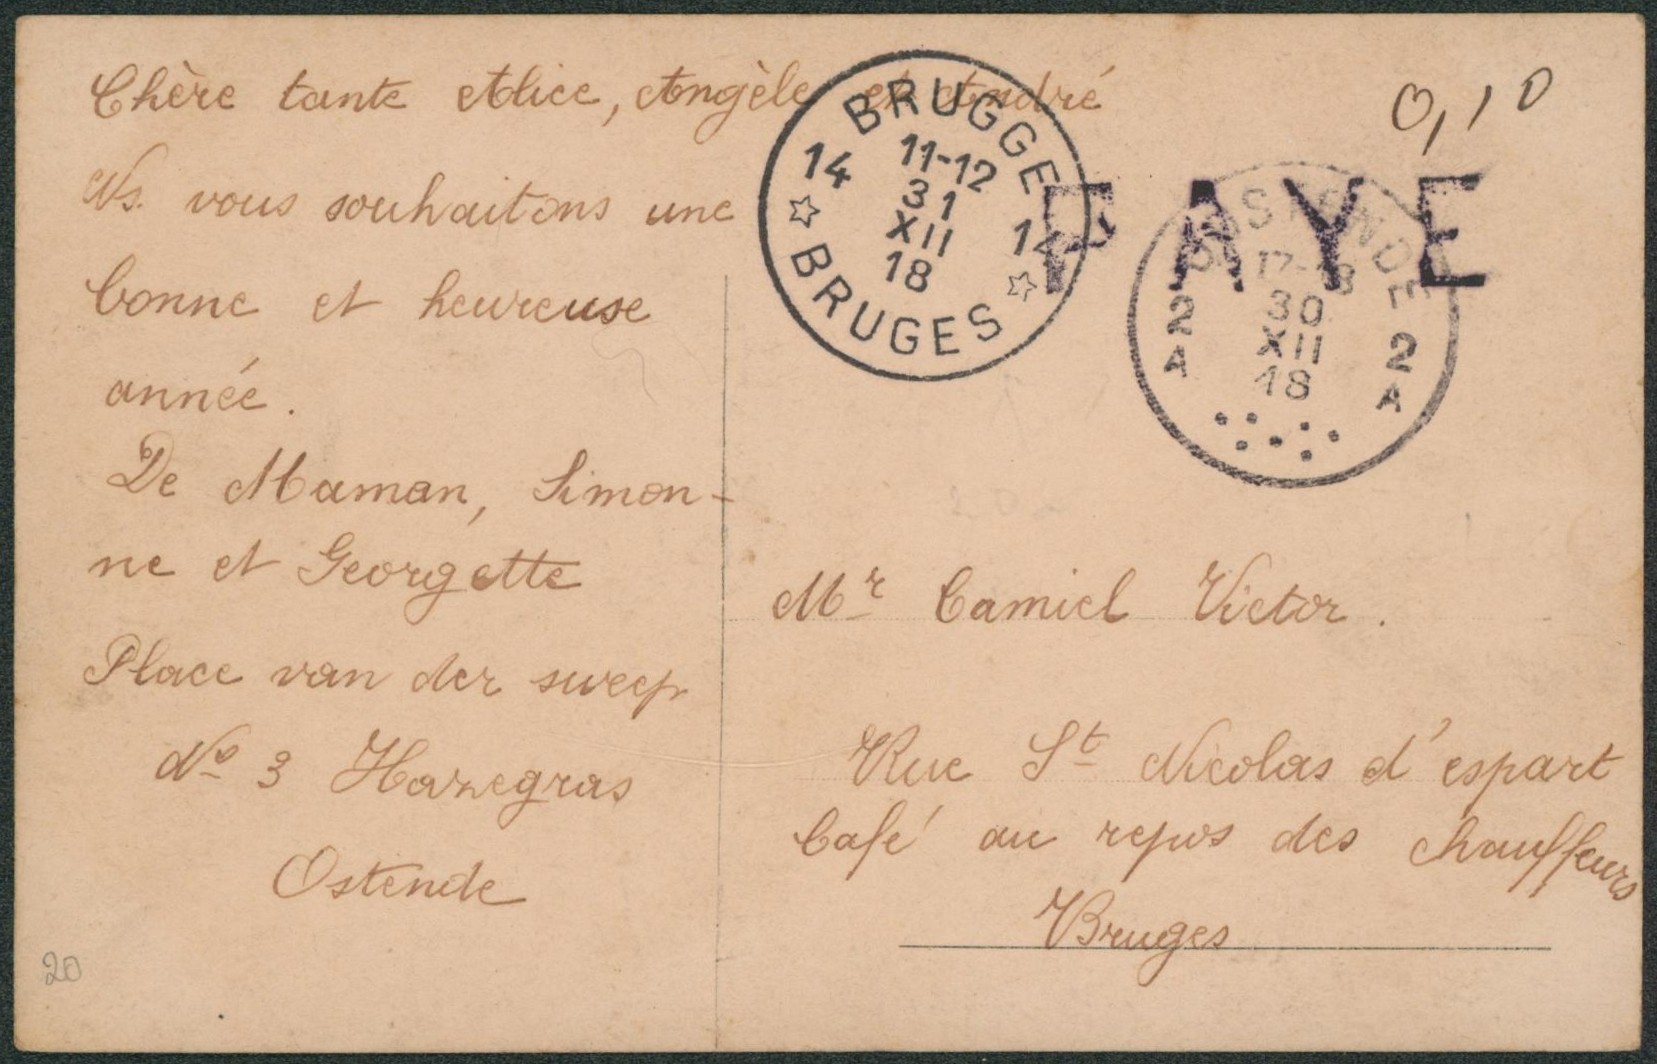 Chère tante Alice, Angèle et André
Ns. vous souhaitons une
bonne et heureuse
année.
De Maman, Simon-
ne et Georgette
Place van der sweep
No 3 Hazegras
Ostende
20
BRUGGE
14 14
11-12
31
XII
18
BRUGES
0,10
PAYE
OOSTENDE
17-18
30
XII
18
2 2
A A
Mr Camiel Victor.
Rue St Nicolas d'espart
Café au repos des chauffeurs
Bruges